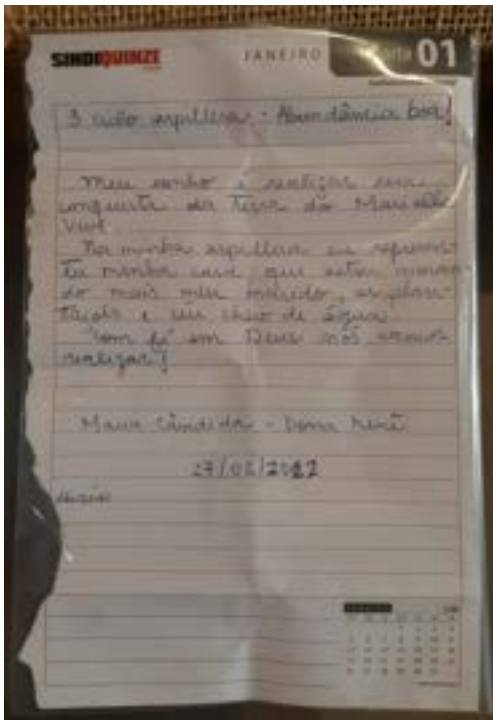 SINDIQUINZE
JANEIRO
01
3 ciclo arpillera - Abundância boa!
Meu sonho é realizar essa
conquista da terra do Marielle
Vive
Na minha arpillera eu represen
tei minha casa que estou moran
do mais meu marido, as plan
tações e um cheio de água
"com fé" em Deus nós vamos
realizar!
Maria Cândida - Dona
27/02/2022